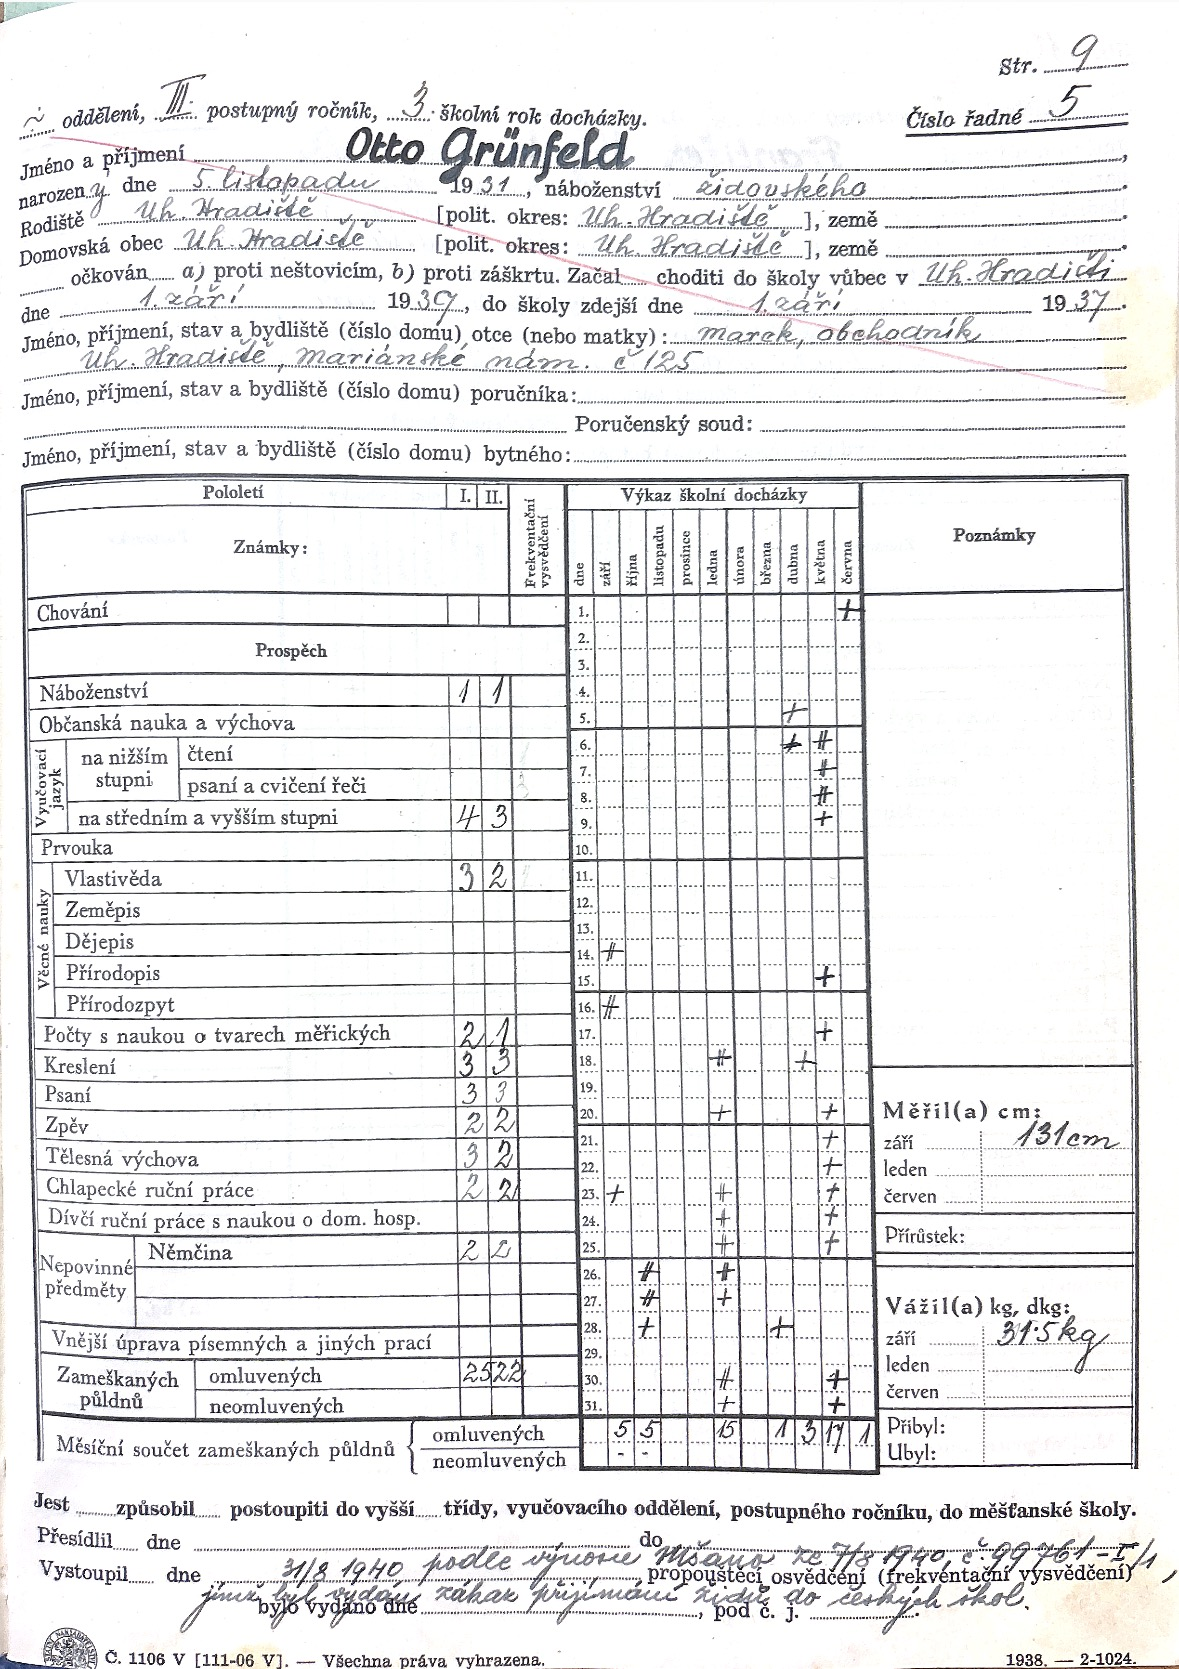 Str. 9
oddělení, III. postupný ročník, 3. školní rok docházky.
Číslo řadné 5
Jméno a příjmení Otto Grünfeld,
narozený dne 5. listopadu 1931, náboženství židovského
Rodiště Uh. Hradiště [polit. okres: Uh. Hradiště], země
Domovská obec Uh. Hradiště [polit. okres: Uh. Hradiště], země
očkován a) proti neštovicím, b) proti záškrtu. Začal choditi do školy vůbec v Uh. Hradišti
dne 1. září 1939, do školy zdejší dne 1. září 1937.
Jméno, příjmení, stav a bydliště (číslo domu) otce (nebo matky): Marek, obchodník
Uh. Hradiště, Mariánské nám. č 125
Jméno, příjmení, stav a bydliště (číslo domu) poručníka:
Poručenský soud:
Jméno, příjmení, stav a bydliště (číslo domu) bytného:
Pololetí I. II. Frekventační vysvědčení
Známky:
Výkaz školní docházky
dne září října listopadu prosince ledna února března dubna května června
Poznámky
Chování
Prospěch
Náboženství 1 1
Občanská nauka a výchova
Vyučovací jazyk
na nižším stupni
čtení
psaní a cvičení řeči
na středním a vyšším stupni 4 3
Prvouka
Věcné nauky
Vlastivěda 3 2
Zeměpis
Dějepis
Přírodopis
Přírodozpyt
Počty s naukou o tvarech měřických 2 1
Kreslení 3 3
Psaní 3 3
Zpěv 2 2
Tělesná výchova 3 2
Chlapecké ruční práce 2 2
Dívčí ruční práce s naukou o dom. hosp.
Nepovinné předměty
Němčina 2 2
Vnější úprava písemných a jiných prací
Zameškaných půldnů
omluvených 25 22
neomluvených
1. +
2.
3.
4.
5. +
6. + #
7. #
8. #
9. +
10.
11.
12.
13.
14. #
15. +
16. #
17. +
18. # +
19.
20. + +
21. +
22. +
23. + # +
24. + +
25. # +
26. # #
27. # +
28. + +
29.
30. # +
31. + +
Měsíční součet zameškaných půldnů
omluvených 5 5 15 1 3 17 1
neomluvených - -
Měřil(a) cm:
září 131 cm
leden
červen
Přírůstek:
Vážil(a) kg, dkg:
září 31·5 kg
leden
červen
Přibyl:
Ubyl:
Jest způsobil postoupiti do vyšší třídy, vyučovacího oddělení, postupného ročníku, do měšťanské školy.
Přesídlil dne do
Vystoupil dne 31/8 1940 podle výnosu MŠANO ze 7/8 1940, č. 99761-I/1
, propouštěcí osvědčení (frekventační vysvědčení)
jímž byl vydán zákaz přijímání židů do českých škol.
bylo vydáno dne , pod č. j.
Č. 1106 V [111-06 V]. — Všechna práva vyhrazena.
1938. — 2-1024.